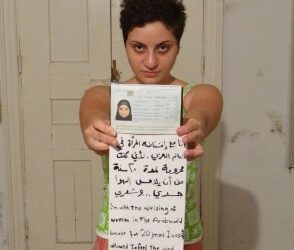 أنا مع إنتفاضة المرأة في
العالم العربي، لأني كنت
محرومة لمدة ٢٠ سنة
من أن يلامس الهوا
جسدي.. وشعري
I'm with the uprising of
women in The Arab world
because for 20 years, I wasn't
allowed to feel the wind